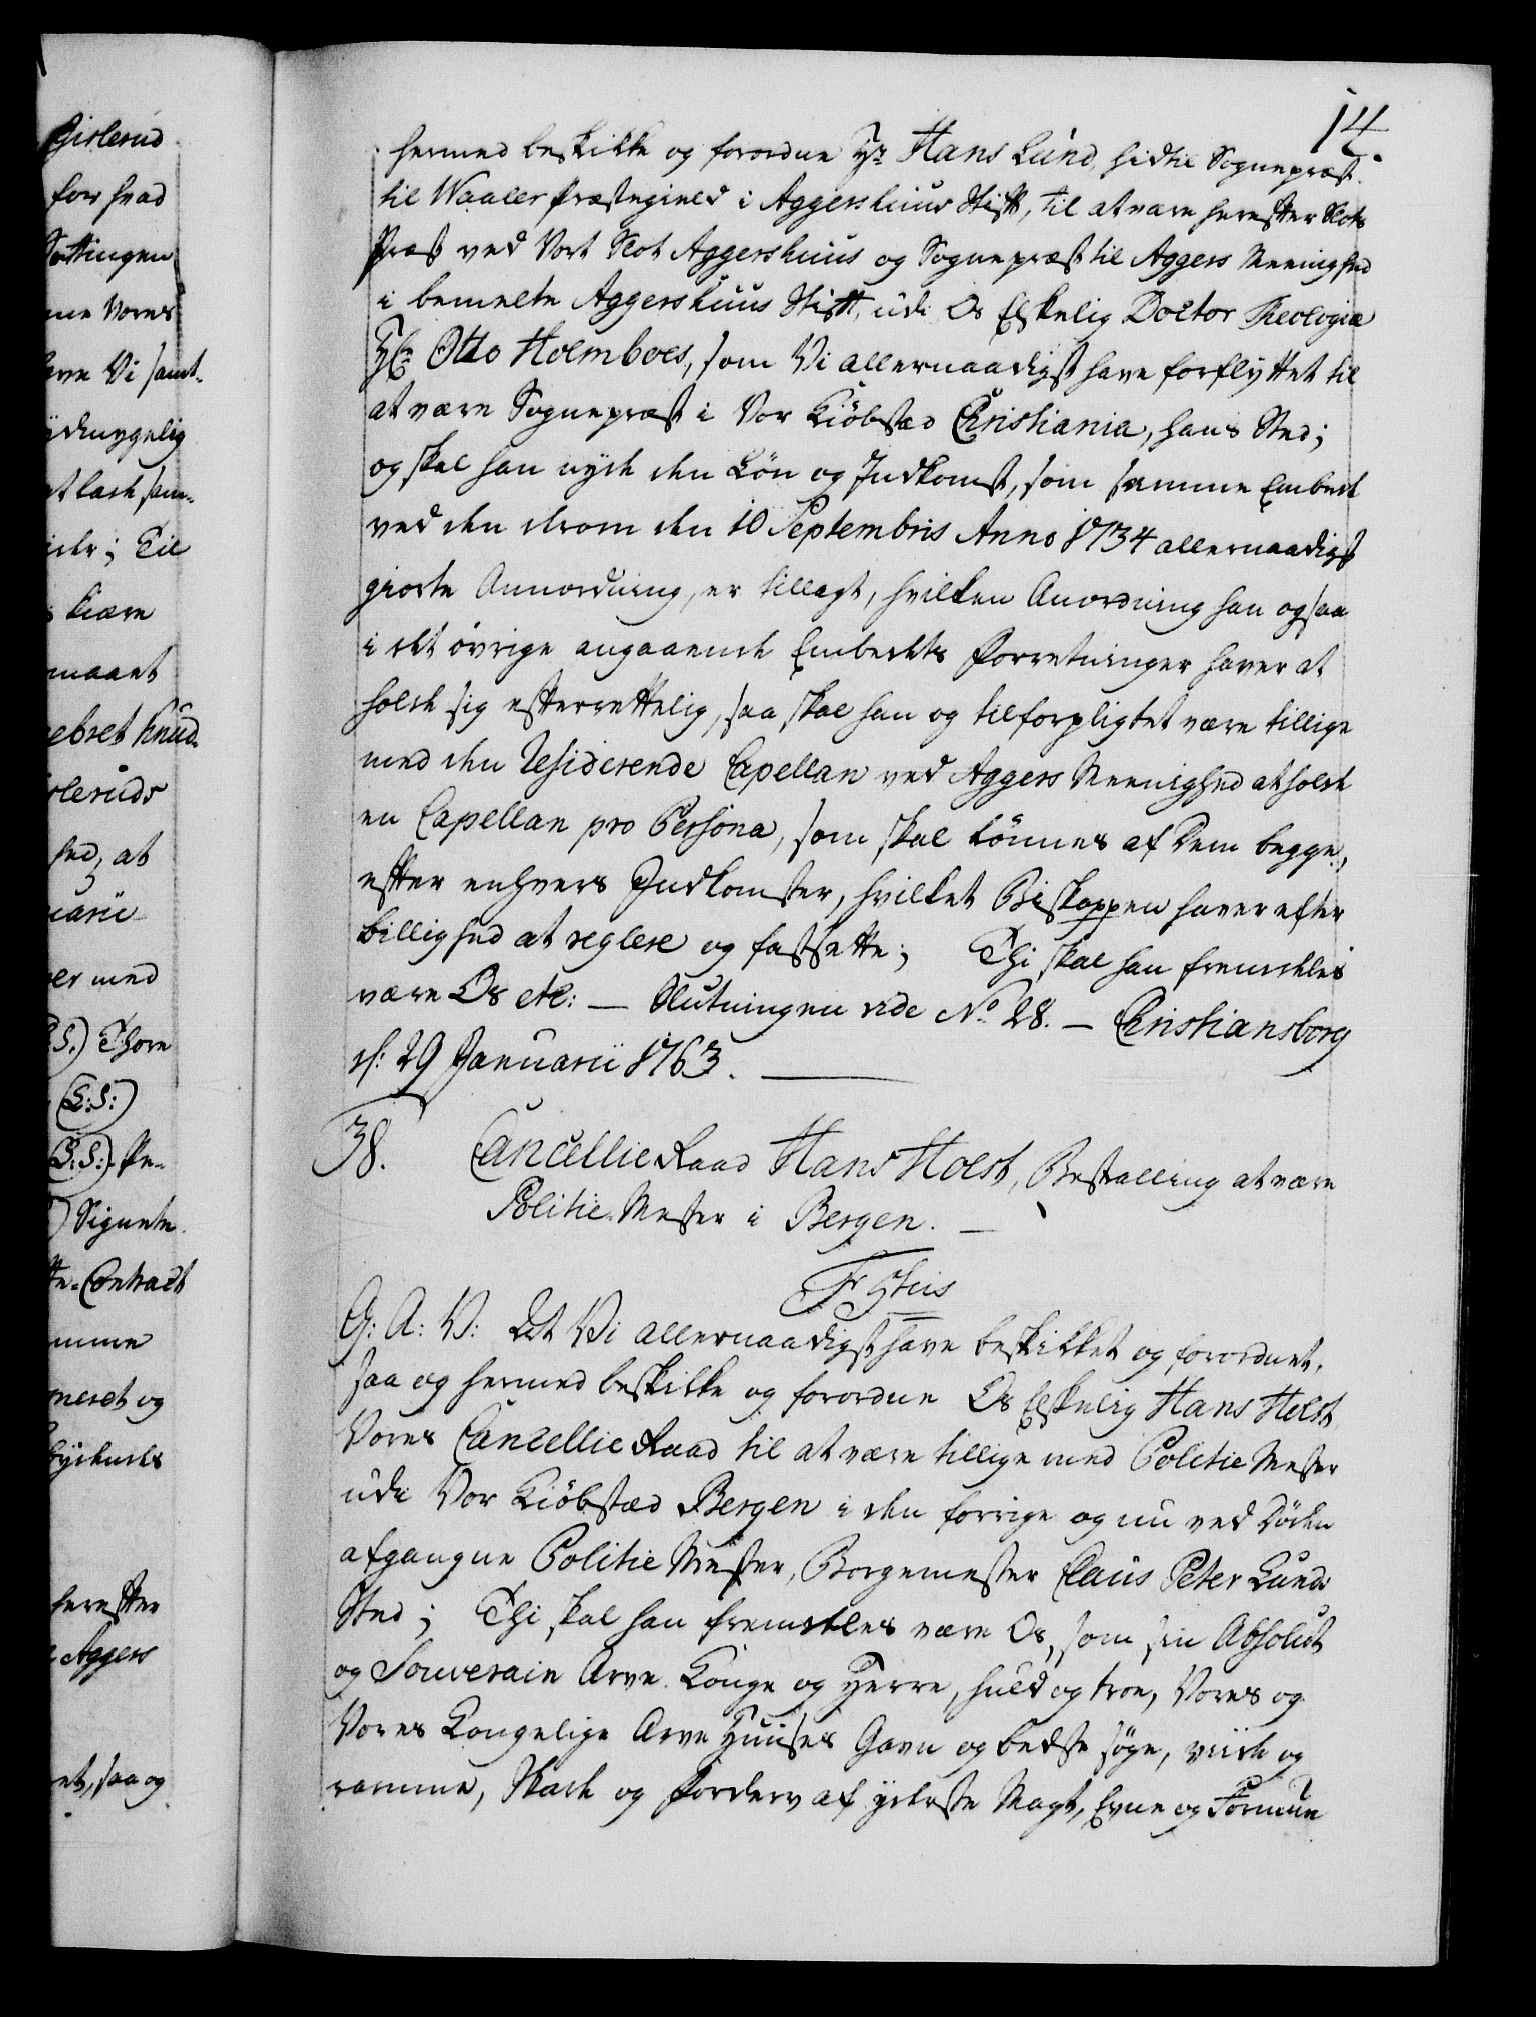 14.
hermed beskikke og forordne Hr: Hans Lund, hidtil Sognepræst
til Waaler Præstegield i Aggershuus Stift, til at være herefter Slots
Præst ved Vort Slot Aggershuus og Sognepræst til Aggers Meenighed
i bemelte Aggershuus Stift, udi Os Elskelig Doctor Theologiæ
Hr: Otto Holmboes, som Vi allernaadigst have forflyttet til
at være Sognepræst i Vor Kiöbstæd Christiania, hans Sted;
og skal han nyde den Lön og Indkomst, som samme Embede
ved den derom den 10 Septembris Anno 1734 allernaadigst
giorte Annordning, er tillagt, hvilken Anordning han ogsaa
i det övrige angaaende Embedets Forretninger haver at
holde sig efterrettelig, saa skal han og tilforpligtet være tillige
med den Residerende Capellan ved Aggers Meenighed at holde
en Capellan pro Persona, som skal lönnes af Dem begge,
efter enhvers Indkomster, hvilket Biskoppen haver efter
billighed at reglere og fastsætte; Thi skal han fremdeles
være Os etc: — Slutningen vide No. 28. — Christiansborg
d: 29 Januarii 1763.
38. Cancellie Raad Hans Holst, Bestalling at være
Politie-Mester i Bergen. —
Fr: 5tus
G: A: V: At Vi allernaadigst have beskikket og forordnet,
saa og hermed beskikke og forordne Os Elskelig Hans Holst
Vores Cancellie Raad til at være tillige med Politie Mester
udi Vor Kiöbstæd Bergen i den forrige og nu ved Döden
afgangne Politie Mester, Borgemester Claus Peter Lunds
Sted; Thi skal han fremdeles være Os, som sin Absolut
og Souverain Arve-Konge og Herre, huld og troe, Vores og
Vores Kongelige Arve Huuses Gavn og bedste söge, viide og
ramme, Skade og Forderv af yderste Magt, Evne og Formue
Gislerud
for hvad
Sættingen
Vores
Vi samt-
ydmygelig
Til
kiære
maaet
Knud-
at
med
Thore
(L:S:)
Signete
Contract
og
herefter
Aggers
saa og